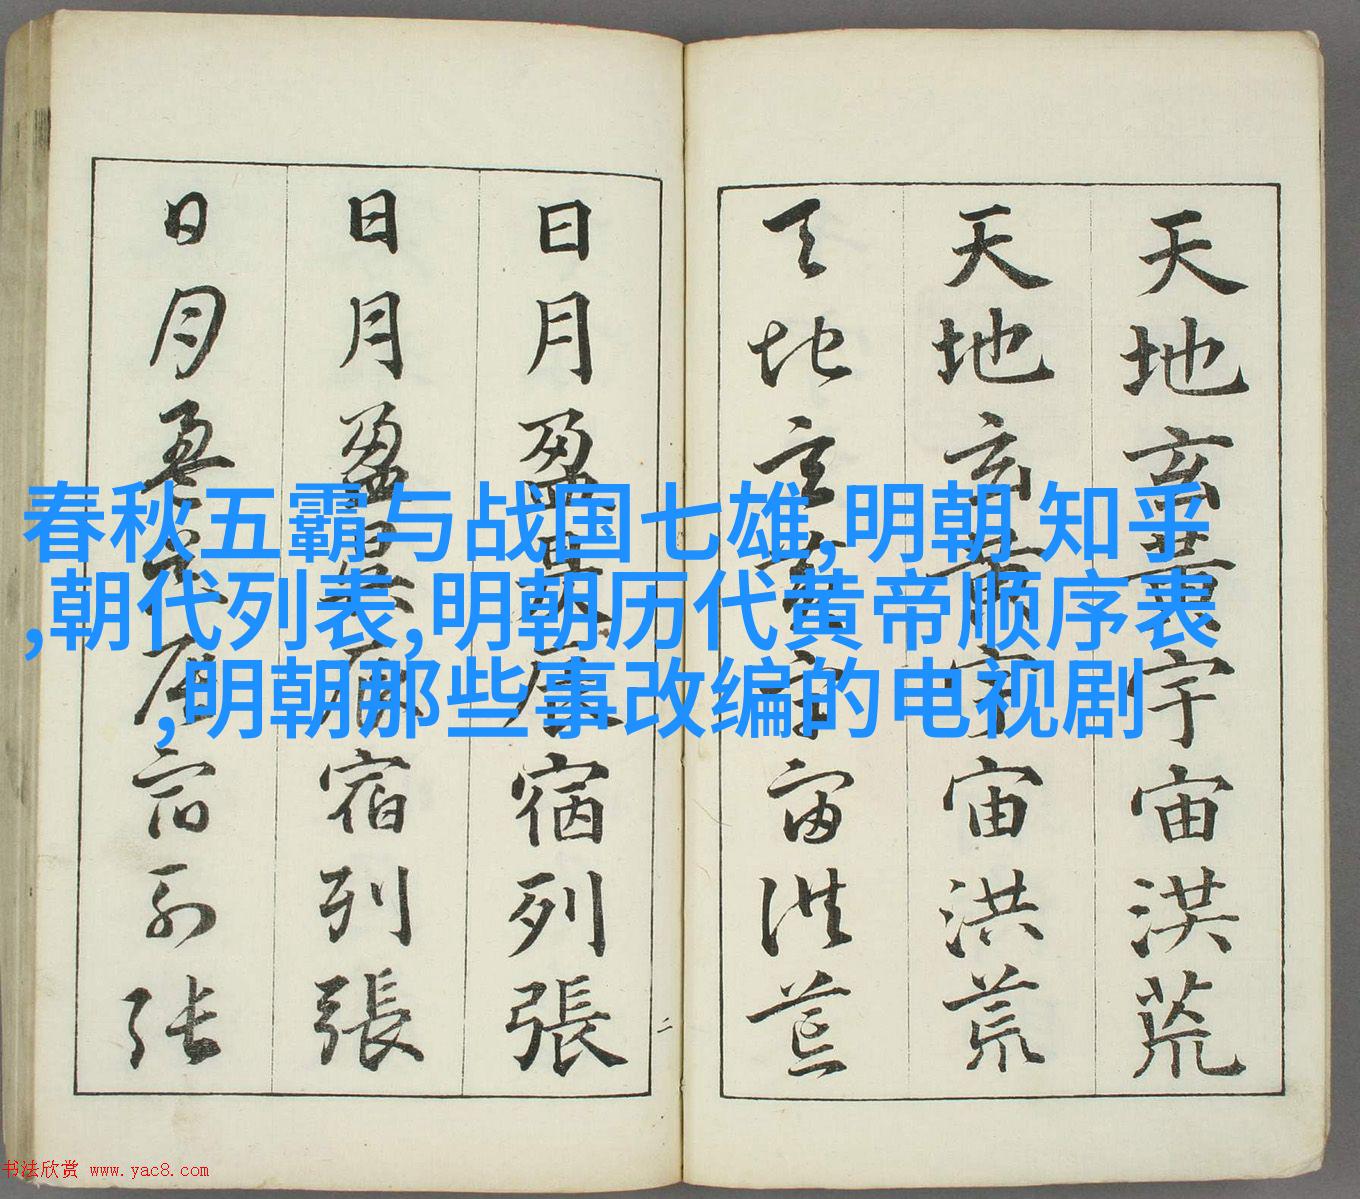 天地玄黃宇宙洪荒
天地玄黃宇宙洪荒
天地玄黃宇宙洪荒
日月盈昃辰宿列張
日月盈昃辰宿列張
日月盈昃辰宿列張
二
春秋五霸与战国七雄,明朝 知乎
,朝代列表,明朝历代黄帝顺序表
,明朝那些事改编的电视剧
书法欣赏 www.yac8.com